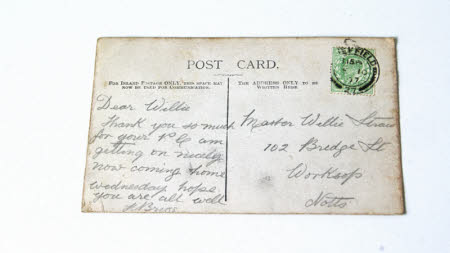 POST CARD.
FOR INLAND POSTAGE ONLY, THIS SPACE MAY
NOW BE USED FOR COMMUNICATION.
THE ADDRESS ONLY TO BE
WRITTEN HERE
Dear Willie
Thank you so much
for your P.C am
getting on nicely
now coming home
wednesday hope
you are all well
Master Willie
102 Bridge St
Worksop
Notts